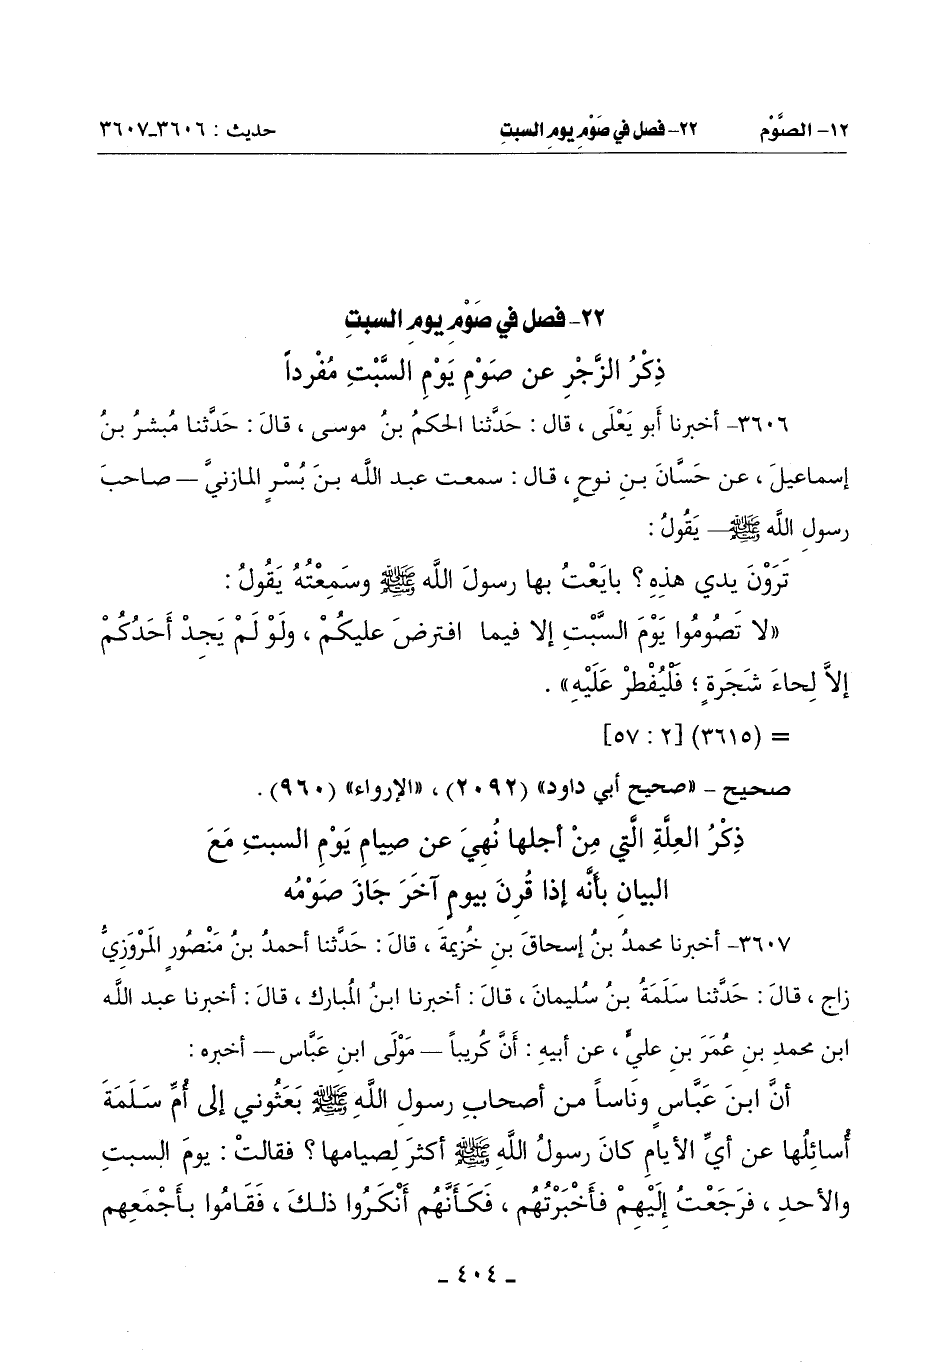 ١٢- الصَّوْم ٢٢- فصل في صَوْمِ يومِ السبتِ حديث : ٣٦٠٦-٣٦٠٧
٢٢- فصل في صَوْمِ يومِ السبتِ
ذِكْرُ الزَّجْرِ عن صَوْمِ يَوْمِ السَّبْتِ مُفْرداً
٣٦٠٦- أخبرنا أبو يَعْلَى ، قال : حَدَّثنا الحكمُ بنُ موسى ، قالَ : حَدَّثنا مُبشرُ بنُ
إسماعيلَ ، عن حَسَّانَ بنِ نوحٍ ، قال : سمعت عبد اللَّه بنَ بُسْرٍ المازنيَّ – صاحبَ
رسولِ اللَّه ﷺ – يَقُولُ :
تَرَوْنَ يدي هذِهِ ؟ بايَعْتُ بها رسولَ اللَّه ﷺ وسَمِعْتُهُ يَقُولُ :
«لا تَصُومُوا يَوْمَ السَّبْتِ إلا فيما افترضَ عليكُمْ ، ولَوْ لَمْ يَجِدْ أَحَدُكُمْ
إلاَّ لِحاءَ شَجَرَةٍ ؛ فَلْيُفْطرْ عَلَيْهِ» .
= (٣٦١٥) [٢ : ٥٧]
صحيح – «صحيح أبي داود» (٢٠٩٢) ، «الإرواء» (٩٦٠) .
ذِكْرُ العِلَّةِ الَّتي مِنْ أجلها نُهِيَ عن صِيامِ يَوْمِ السبتِ مَعَ
البيانِ بأنَّه إذا قُرنَ بيومٍ آخَرَ جَازَ صَوْمُه
٣٦٠٧- أخبرنا محمدُ بنُ إسحاقَ بنِ خُزيمةَ ، قالَ : حَدَّثنا أحمدُ بنُ مَنْصُورٍ المَرْوَزِيُّ
زاج ، قالَ : حَدَّثنا سَلَمَةُ بنُ سُليمانَ ، قالَ : أخبرنا ابنُ المُبارك ، قالَ : أخبرنا عبد اللَّه
ابن محمدِ بنِ عُمَرَ بنِ عليٍّ ، عن أبيه : أنَّ كُريباً – مَوْلَى ابنِ عَبَّاس – أخبره :
أنَّ ابنَ عَبَّاسٍ ونَاساً من أصحابِ رسولِ اللَّهِ ﷺ بَعَثُوني إلى أُمِّ سَلَمَةَ
أُسائِلُها عن أيِّ الأيامِ كانَ رسولُ اللَّهِ ﷺ أكثرَ لِصيامها ؟ فقالتْ : يومَ السبتِ
والأحدِ ، فرَجَعْتُ إِلَيْهِمْ فأَخْبَرْتُهُم ، فكَأَنَّهُم أَنْكَرُوا ذلكَ ، فَقَامُوا بأجْمَعِهِم
– ٤٠٤ –